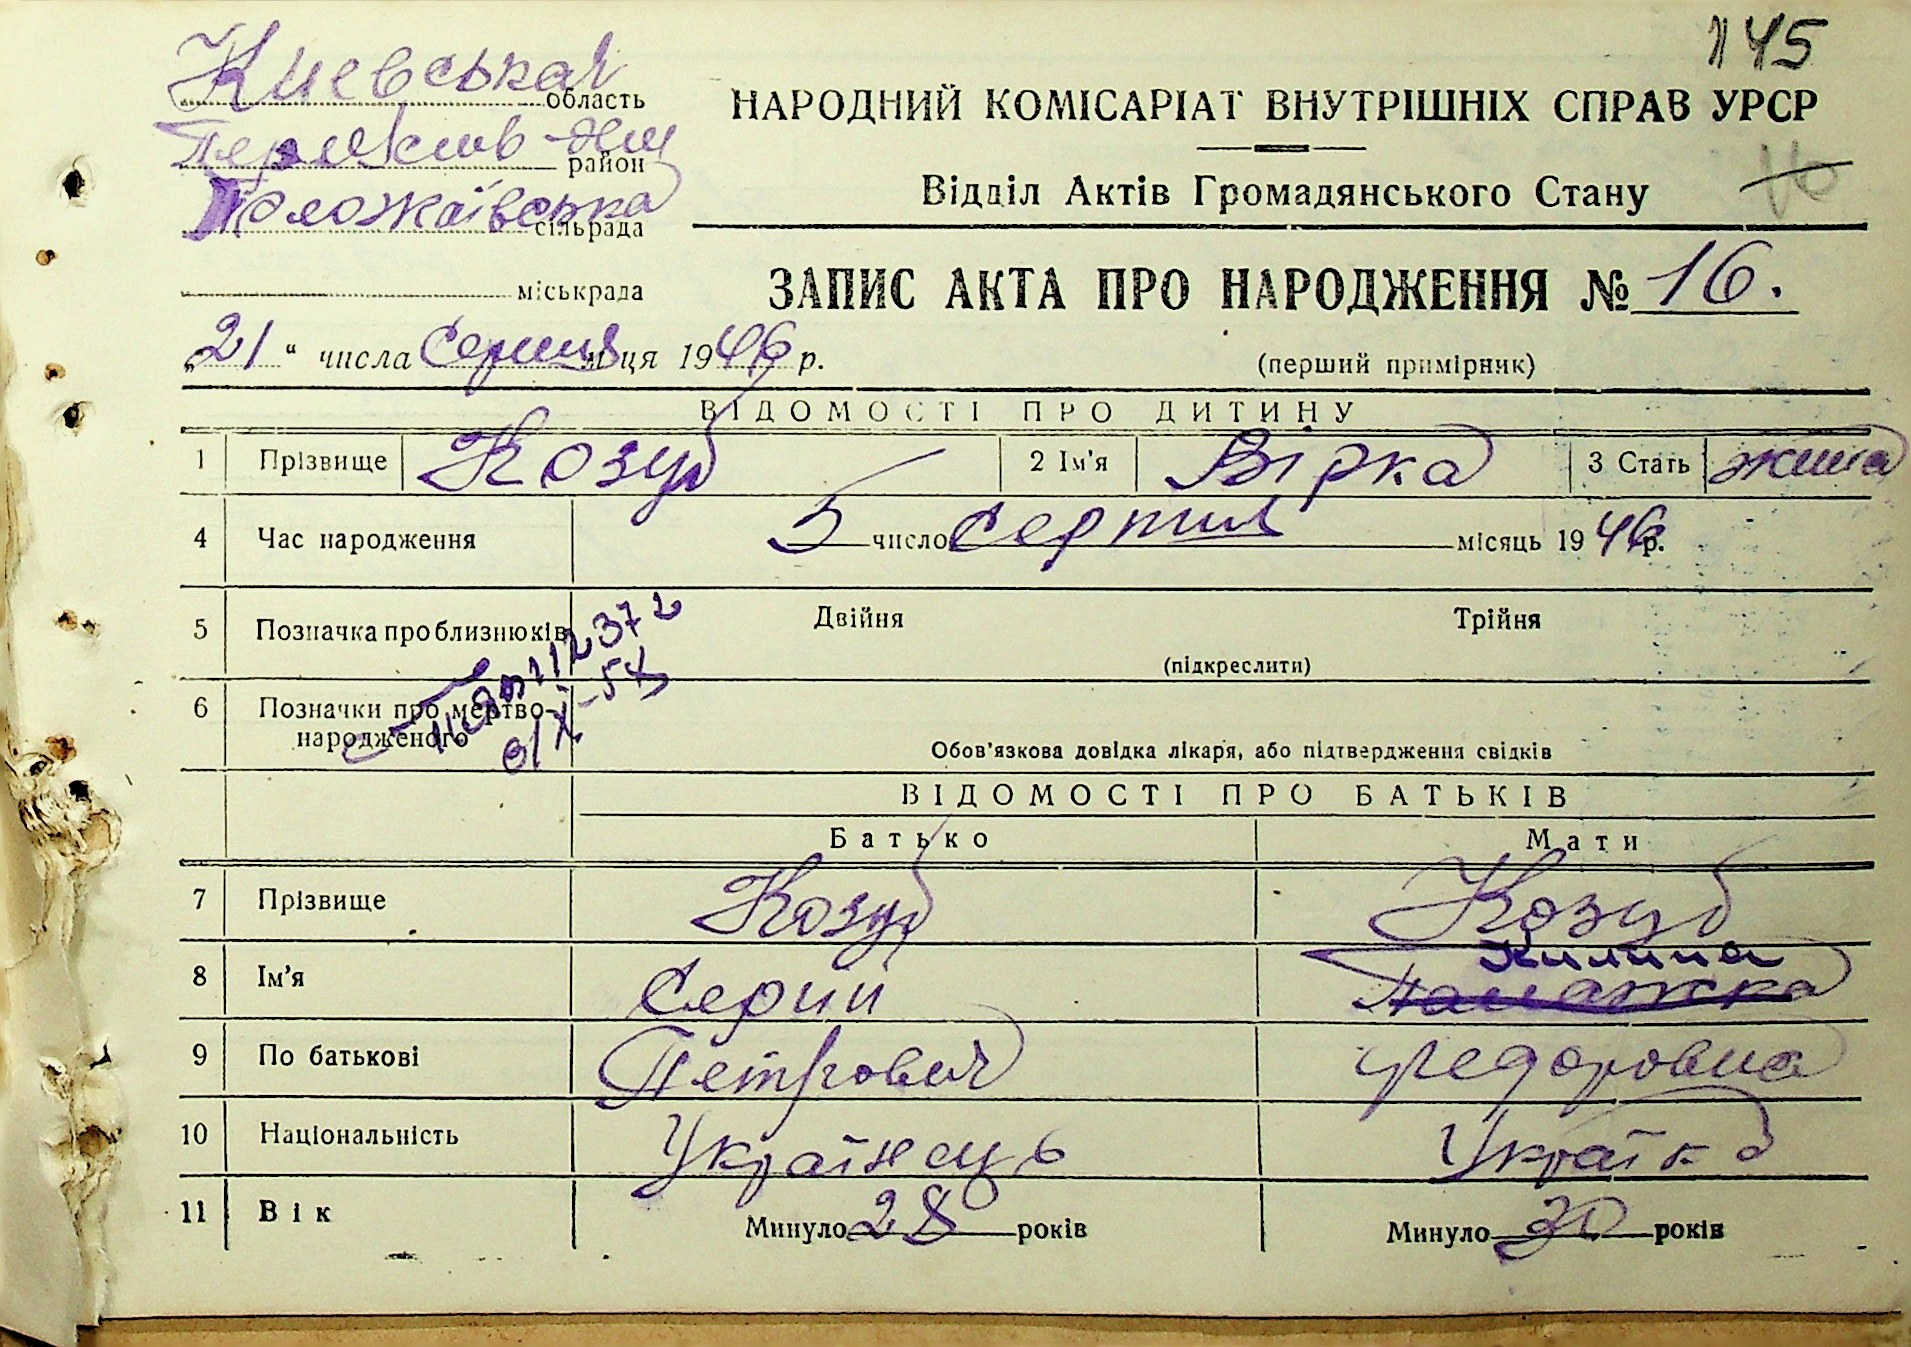 145
Киевськая область
НАРОДНИЙ КОМІСАРІАТ ВНУТРІШНІХ СПРАВ УРСР
район
Відділ Актів Громадянського Стану
10
Положаївська сільрада
міськрада
ЗАПИС АКТА ПРО НАРОДЖЕННЯ № 16.
„21“ числа Серпня м-ця 1946 р.
(перший примірник)
ВІДОМОСТІ ПРО ДИТИНУ
1 Прізвище Козуб 2 Ім'я Вірка 3 Стать
4 Час народження 5 число Серпня місяць 1946 р.
5 Позначка про близнюків Двійня Трійня
(підкреслити)
6 Позначки про мертво-
народженого
Обов'язкова довідка лікаря, або підтвердження свідків
ВІДОМОСТІ ПРО БАТЬКІВ
Батько Мати
7 Прізвище Козуб Козуб
Килина
8 Ім'я Сергий
9 По батькові Петрович Федоровна
10 Національність Українець Українка
11 Вік Минуло 28 років Минуло 30 років